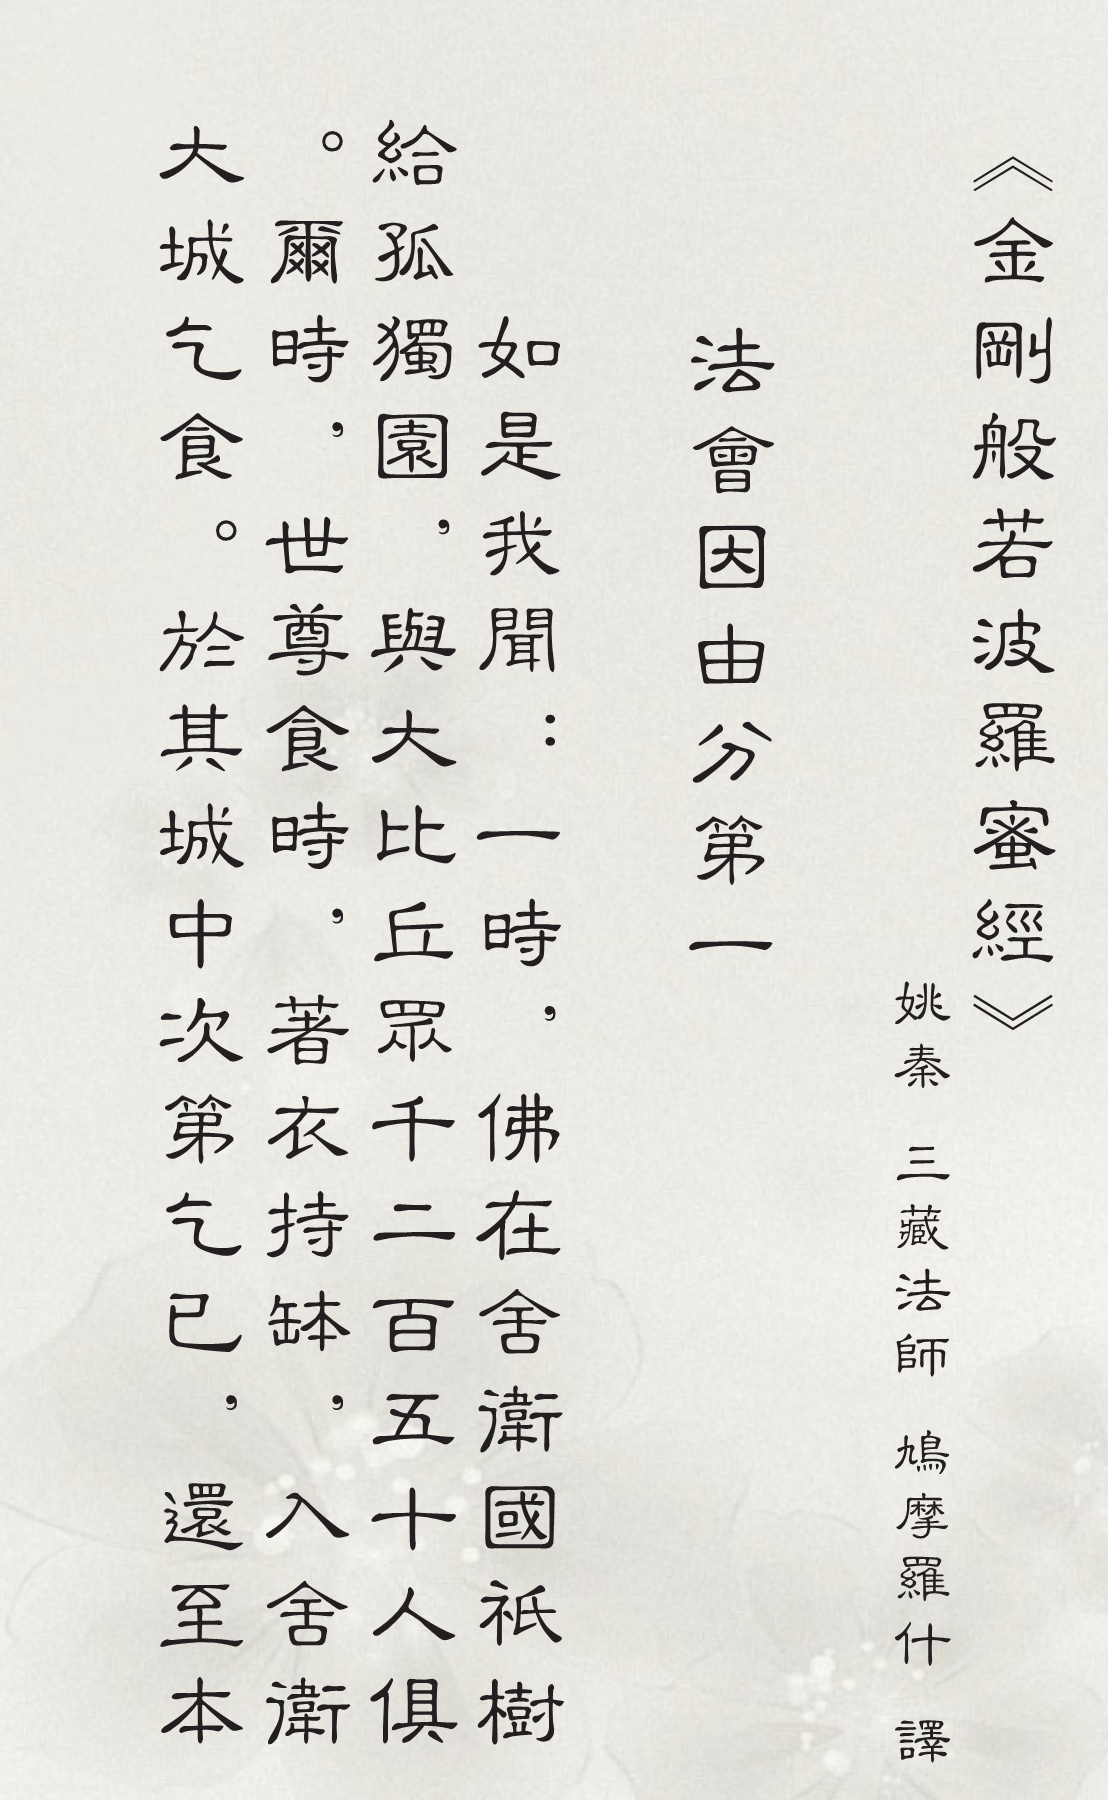 《金剛般若波羅蜜經》
姚秦 三藏法師 鳩摩羅什 譯
法會因由分第一
如是我聞：一時，佛在舍衛國祇樹
給孤獨園，與大比丘眾千二百五十人俱
。爾時，世尊食時，著衣持缽，入舍衛
大城乞食。於其城中次第乞已，還至本